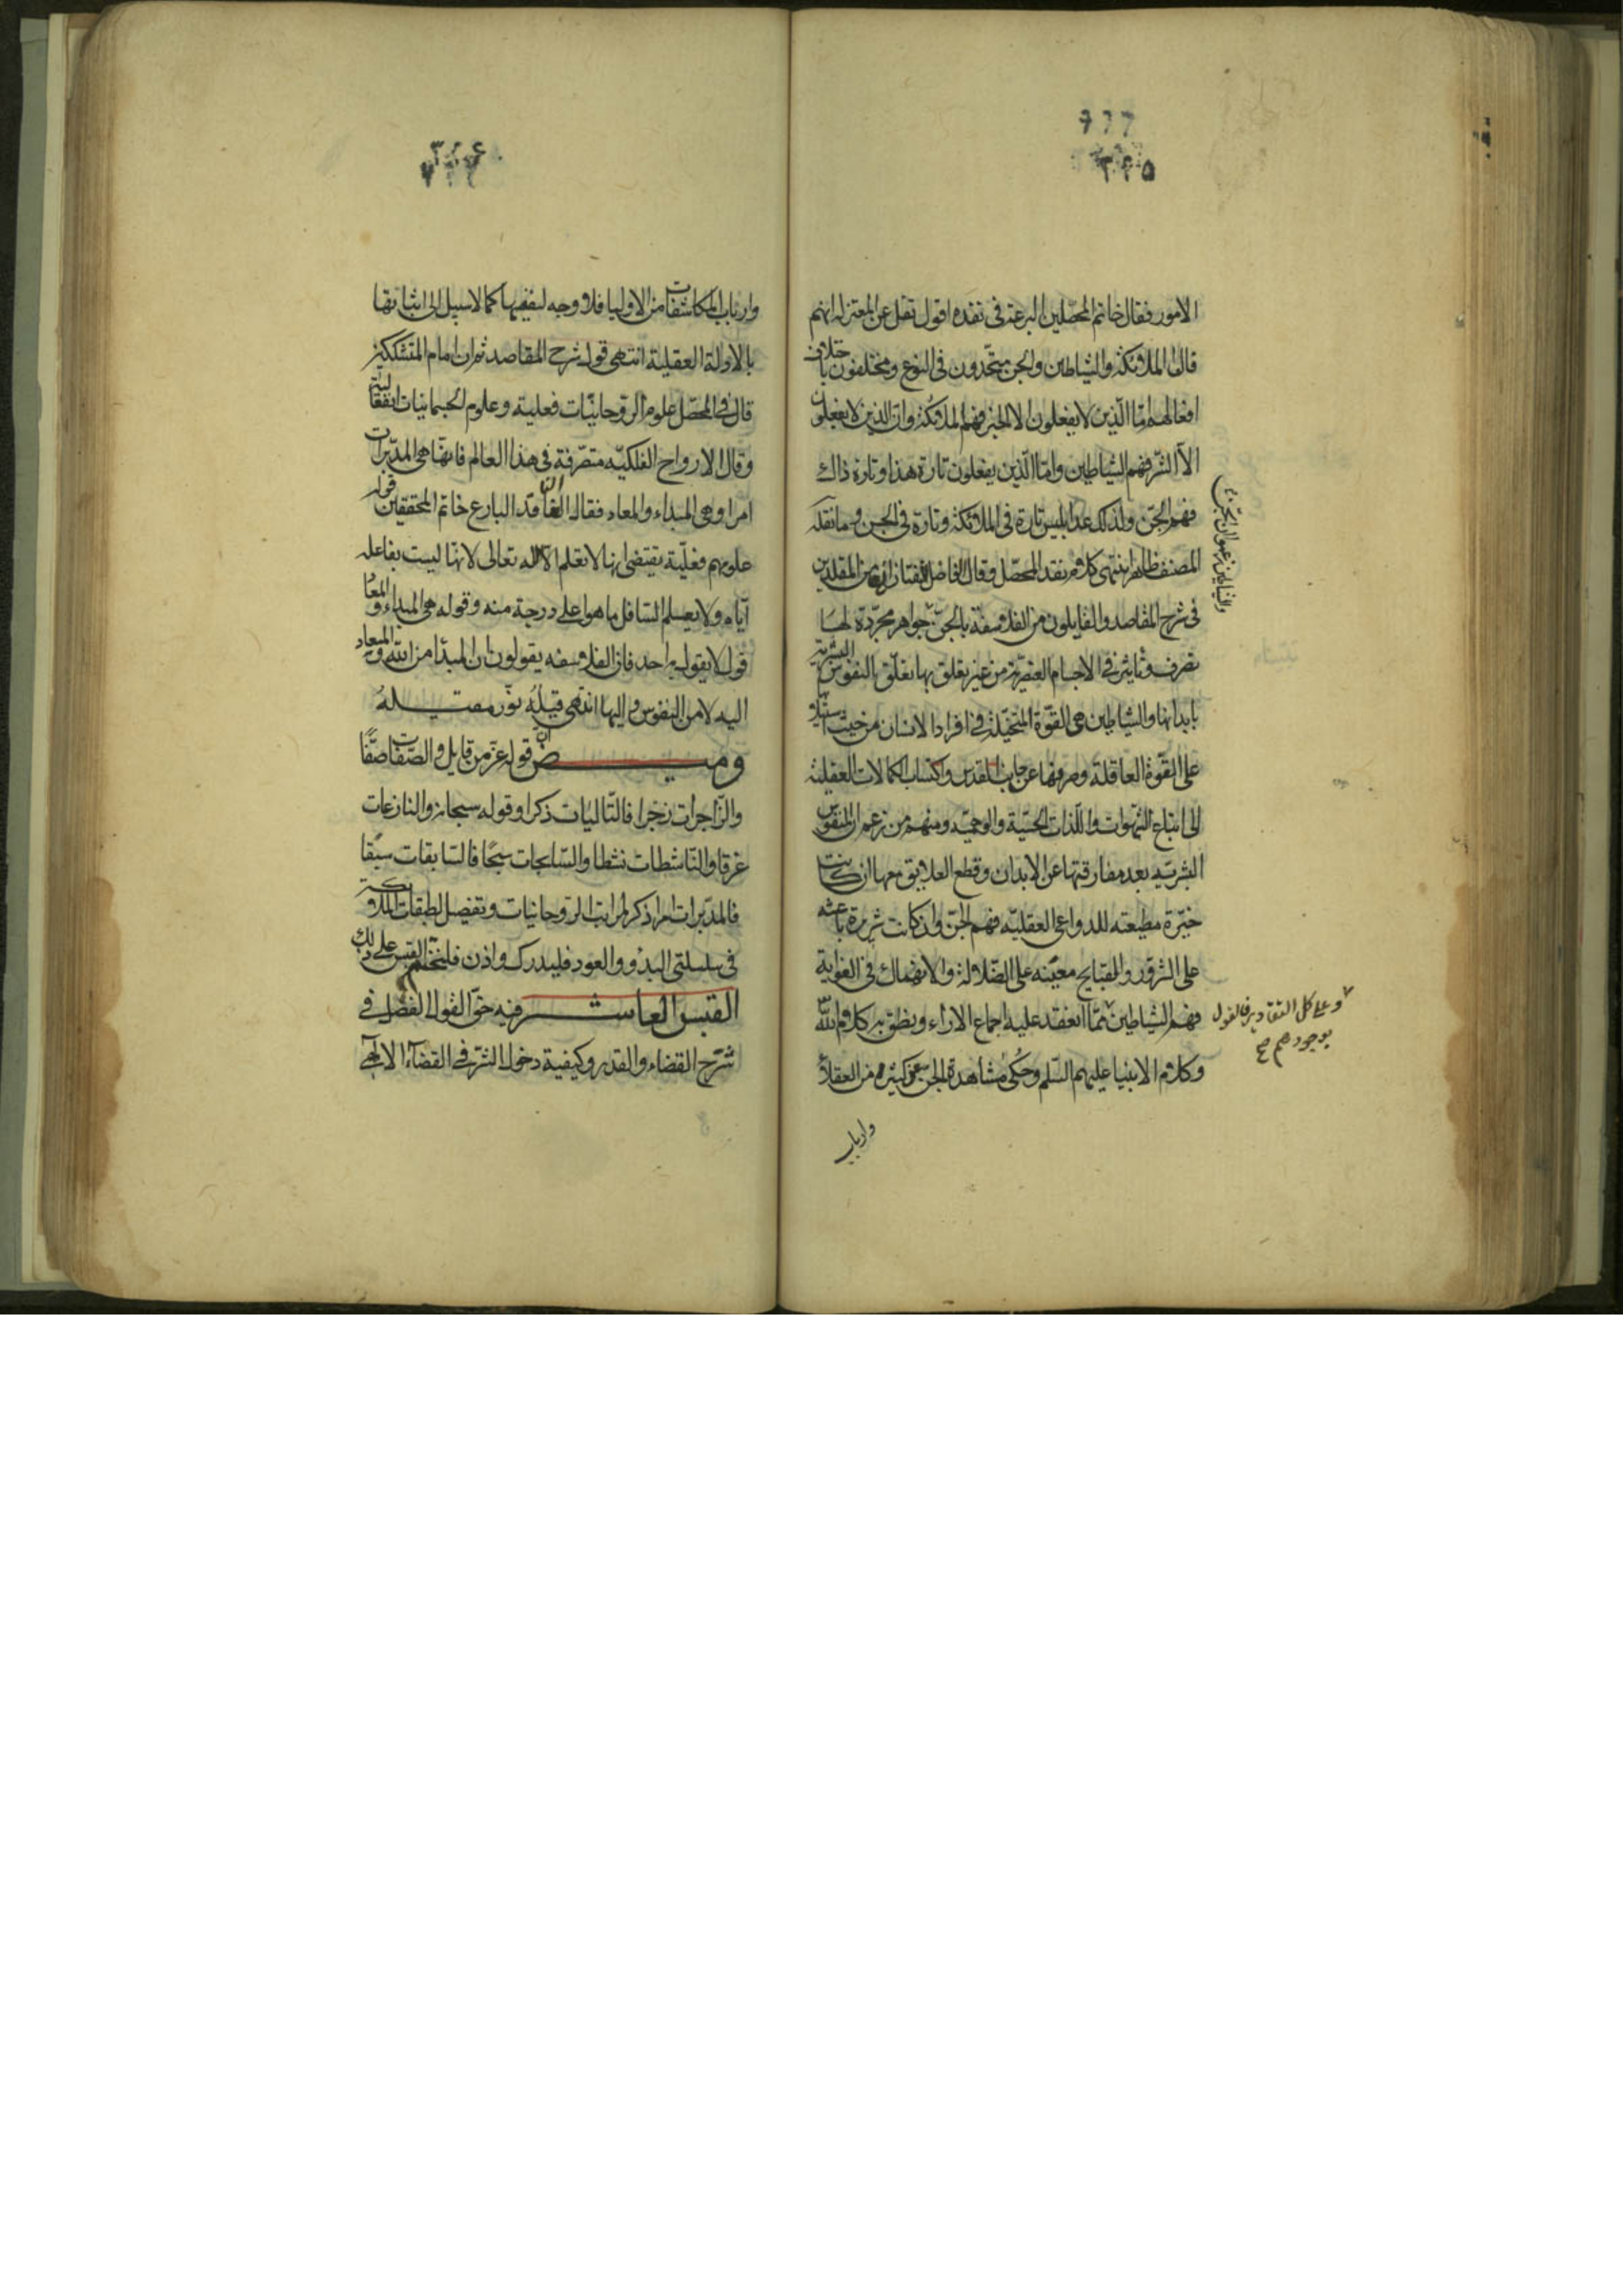 ٣٢٥
الامور فقال خاتم المحصّلين البرعة فى نقده اقول نقل عن المعتزله انهم
قالوا الملائكة والشياطين والجن متّحدون فى النوع ومختلفون باختلاف
افعالهم امّا الّذين لا يفعلون الا الخير فهم الملائكة وامّا الذين لا يفعلون
الّا الشّر فهم الشياطين وامّا الّذين يفعلون تارة هذا وتارة ذاك
فهم الجنّ ولذلك عدا بليس تارة فى الملائكة وتارة فى الجن وما نقله
المصنف ظاهر انتهى كلام نقد المحصّل وقال الفاضل التفتازانى من المقلدين
فى شرح المقاصد والقايلون من الفلاسفة بالجنّ
والشياطين زعموا ان الجنّ
جواهر مجرّدة لها
تصرف وتاثير فى الاجسام العنصرية من غير تعلق بها تعلّق النفوس البشرية
بابدانها والشياطين هى القوّة المتخيّلة فى افراد الانسان من حيث استيلاؤ
على القوّة العاقلة وصرفها عن جانب القدس واكتساب الكمالات العقلية
الى اتباع الشهوات واللّذات الحسّية والوهميّه ومنهم من زعم ان النفوس
البشريّه بعد مفارقتها عن الابدان وقطع العلايق معها ان كانت
خيّرة مطيعته للدواعى العقليّه فهم الجنّ وان كانت شريرة باعثه
على الشرور والقبايح معيّنه على الضّلالة والانهماك فى الغواية
فهم الشياطين
وعلى كل التقادير فالقول
بوجودهم صح
ممّا انعقد عليه اجماع الاراء ونطق به كلام اللّه
وكلام الانبيا عليهم السّلم وحُكى مشاهدة الجن عن كثيره من العقلاء
وارباب
٣٢٦
وارباب المكاشفات من الاوليا فلا وجه لنفيها كما لا سبيل الى اثباتها
بالادلة العقلية انتهى قول شرح المقاصد ثم ان امام المتشككين
قال فى المحصّل علوم الروحانيّات فعلية وعلوم الجسمانيات انفعالية
وقال الارواح الفلكيّه متصّرفة فى هذا العالم فانها هى المدبّرات
امرا وهى المبداء والمعاد فقال النّاقد البارع خاتم المحققين قوله
علومهم فعليّة يقتضى انها لا تعلم الاله تعالى لانها ليست بفاعله
ايّاه ولا يعسلم السّافل ما هو اعلى درجة منه وقوله هى المبداء والمعاد
قول لا يقول به احد فان الفلاسفه يقولون ان المبدأ من اللّه والمعاد
اليه لا من النفوس واليها انتهى قيله نوّر مقيله
وميض ان قوله عزّ من قايل والصّفات صفًّا
والزّاجرات زجرا فالتّاليات ذكرا وقوله سبحانه والنازعات
غرقا والنّاشطات نشطا والسّابحات سبحًا فالسّابقات سبقًا
فالمدبّرات امرا ذكر لمراتب الروحانيات وتفصيل لطبقات الملائكة
فى سلسلتى البدو والعود فليدرك واذن فلنختم القبس على ذلك
القبس العاشر فيه حقّ القول الفصل فى
شرح القضاء والقدر وكيفية دخول الشّر فى القضاء الالهى